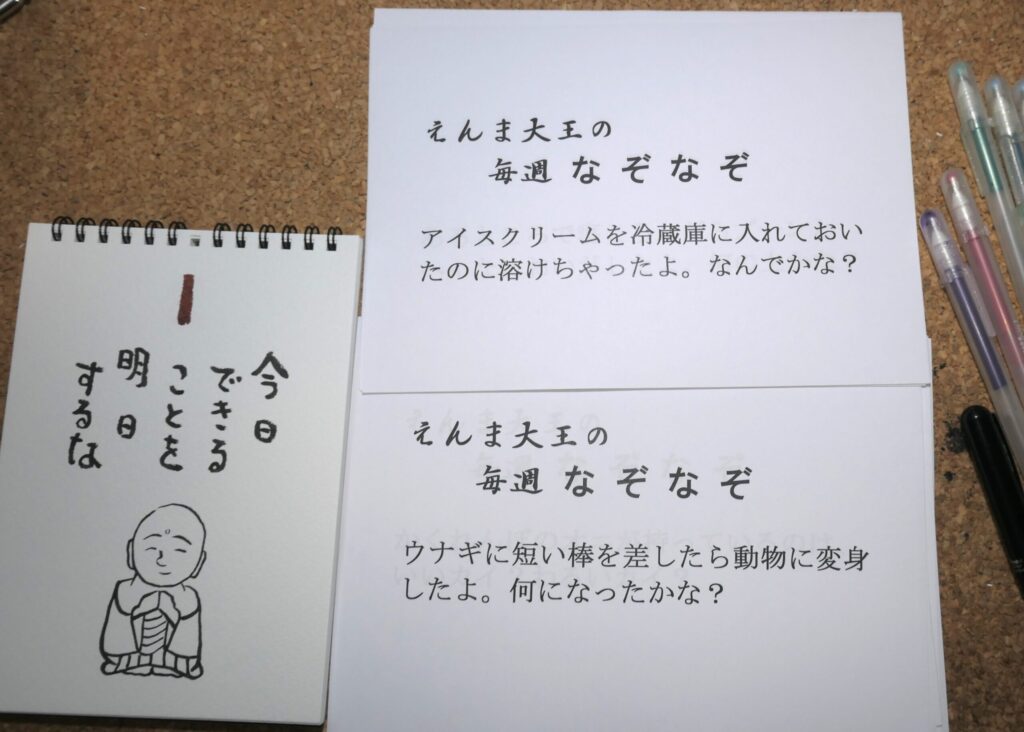 えんま大王の
毎週なぞなぞ
アイスクリームを冷蔵庫に入れておい
たのに溶けちゃったよ。なんでかな？
えんま大王の
毎週なぞなぞ
ウナギに短い棒を差したら動物に変身
したよ。何になったかな？
今日
できる
ことを
明日
するな